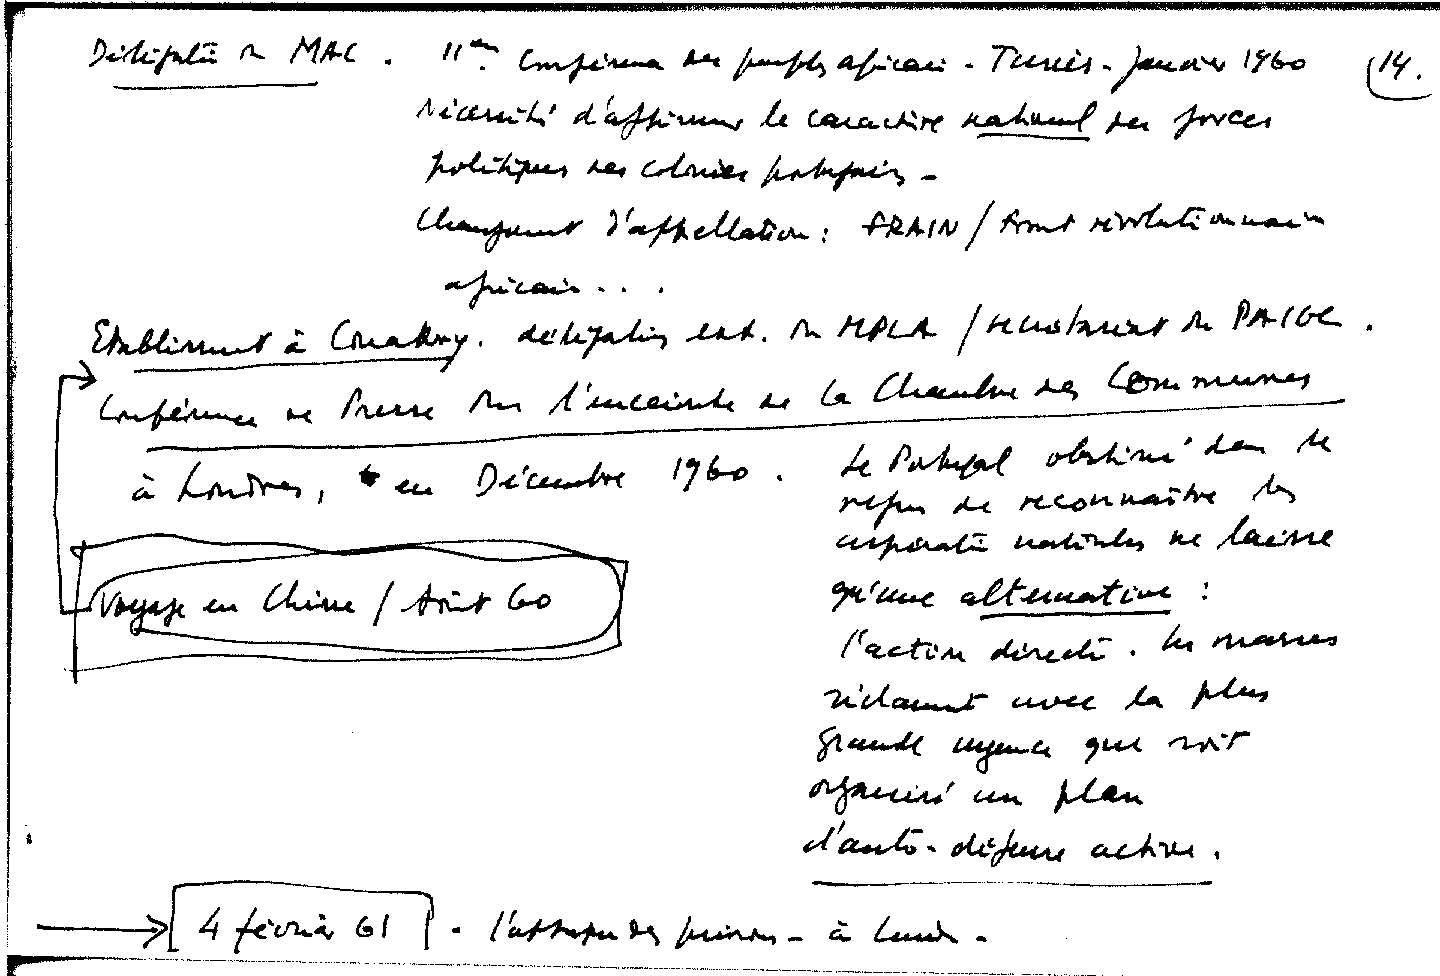 Délégation du MAC. IIème Conférence des peuples africains - Tunis - Janvier 1960 (14.
Nécessité d'affirmer le caractère national des forces
politiques des colonies portugaises -
Changement d'appellation : FRAIN / Front révolutionnaire
africain...
Etablissement à Conakry. délégation ext. du MPLA / secrétariat du PAIGC.
Conférence de Presse dans l'enceinte de la Chambre des Communes
à Londres, en Décembre 1960. Le Portugal obstiné dans le
refus de reconnaître les
aspirations nationales ne laisse
qu'une alternative :
l'action directe. Les masses
réclament avec la plus
grande urgence que soit
organisé un plan
d'auto-défense active.
Voyage en Chine / Août 60
4 février 61. l'attaque des prisons - à Luanda -